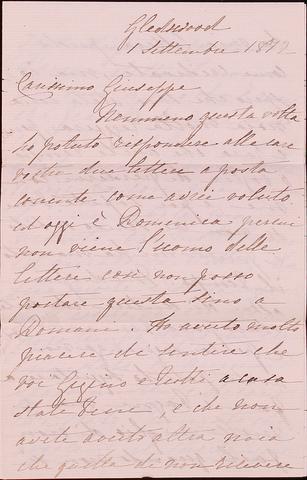 Gledswood
1 Settembre 1872
Carissimo Giuseppe
Nemmeno questa volta
ho potuto rispondere alle care
vostre due lettere a posta
corrente come avrei voluto
ed oggi è Domenica perciò
non viene l'uomo delle
lettere così non posso
postare questa sino a
Domani. Ho avuto molto
piacere di sentire che
voi Gigino e a casa
state bene, e che non
avete avuto altra noia
che quella di non ricevere